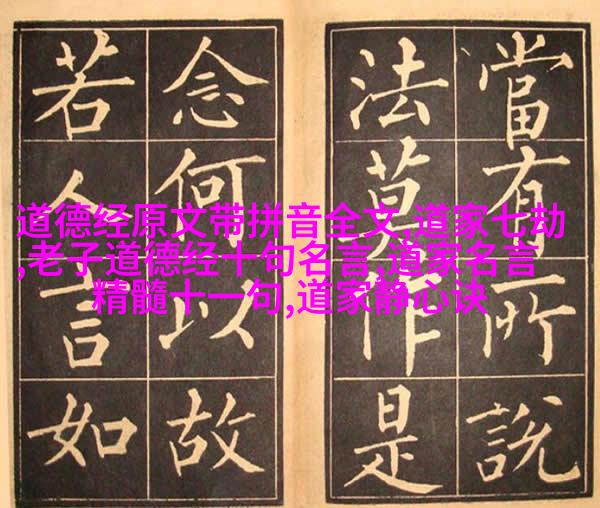 當有所說
法莫作是
念何以故
若人言如
道德经原文带拼音全文,道家七劫
,老子道德经十句名言,道家名言
精髓十一句,道家静心诀